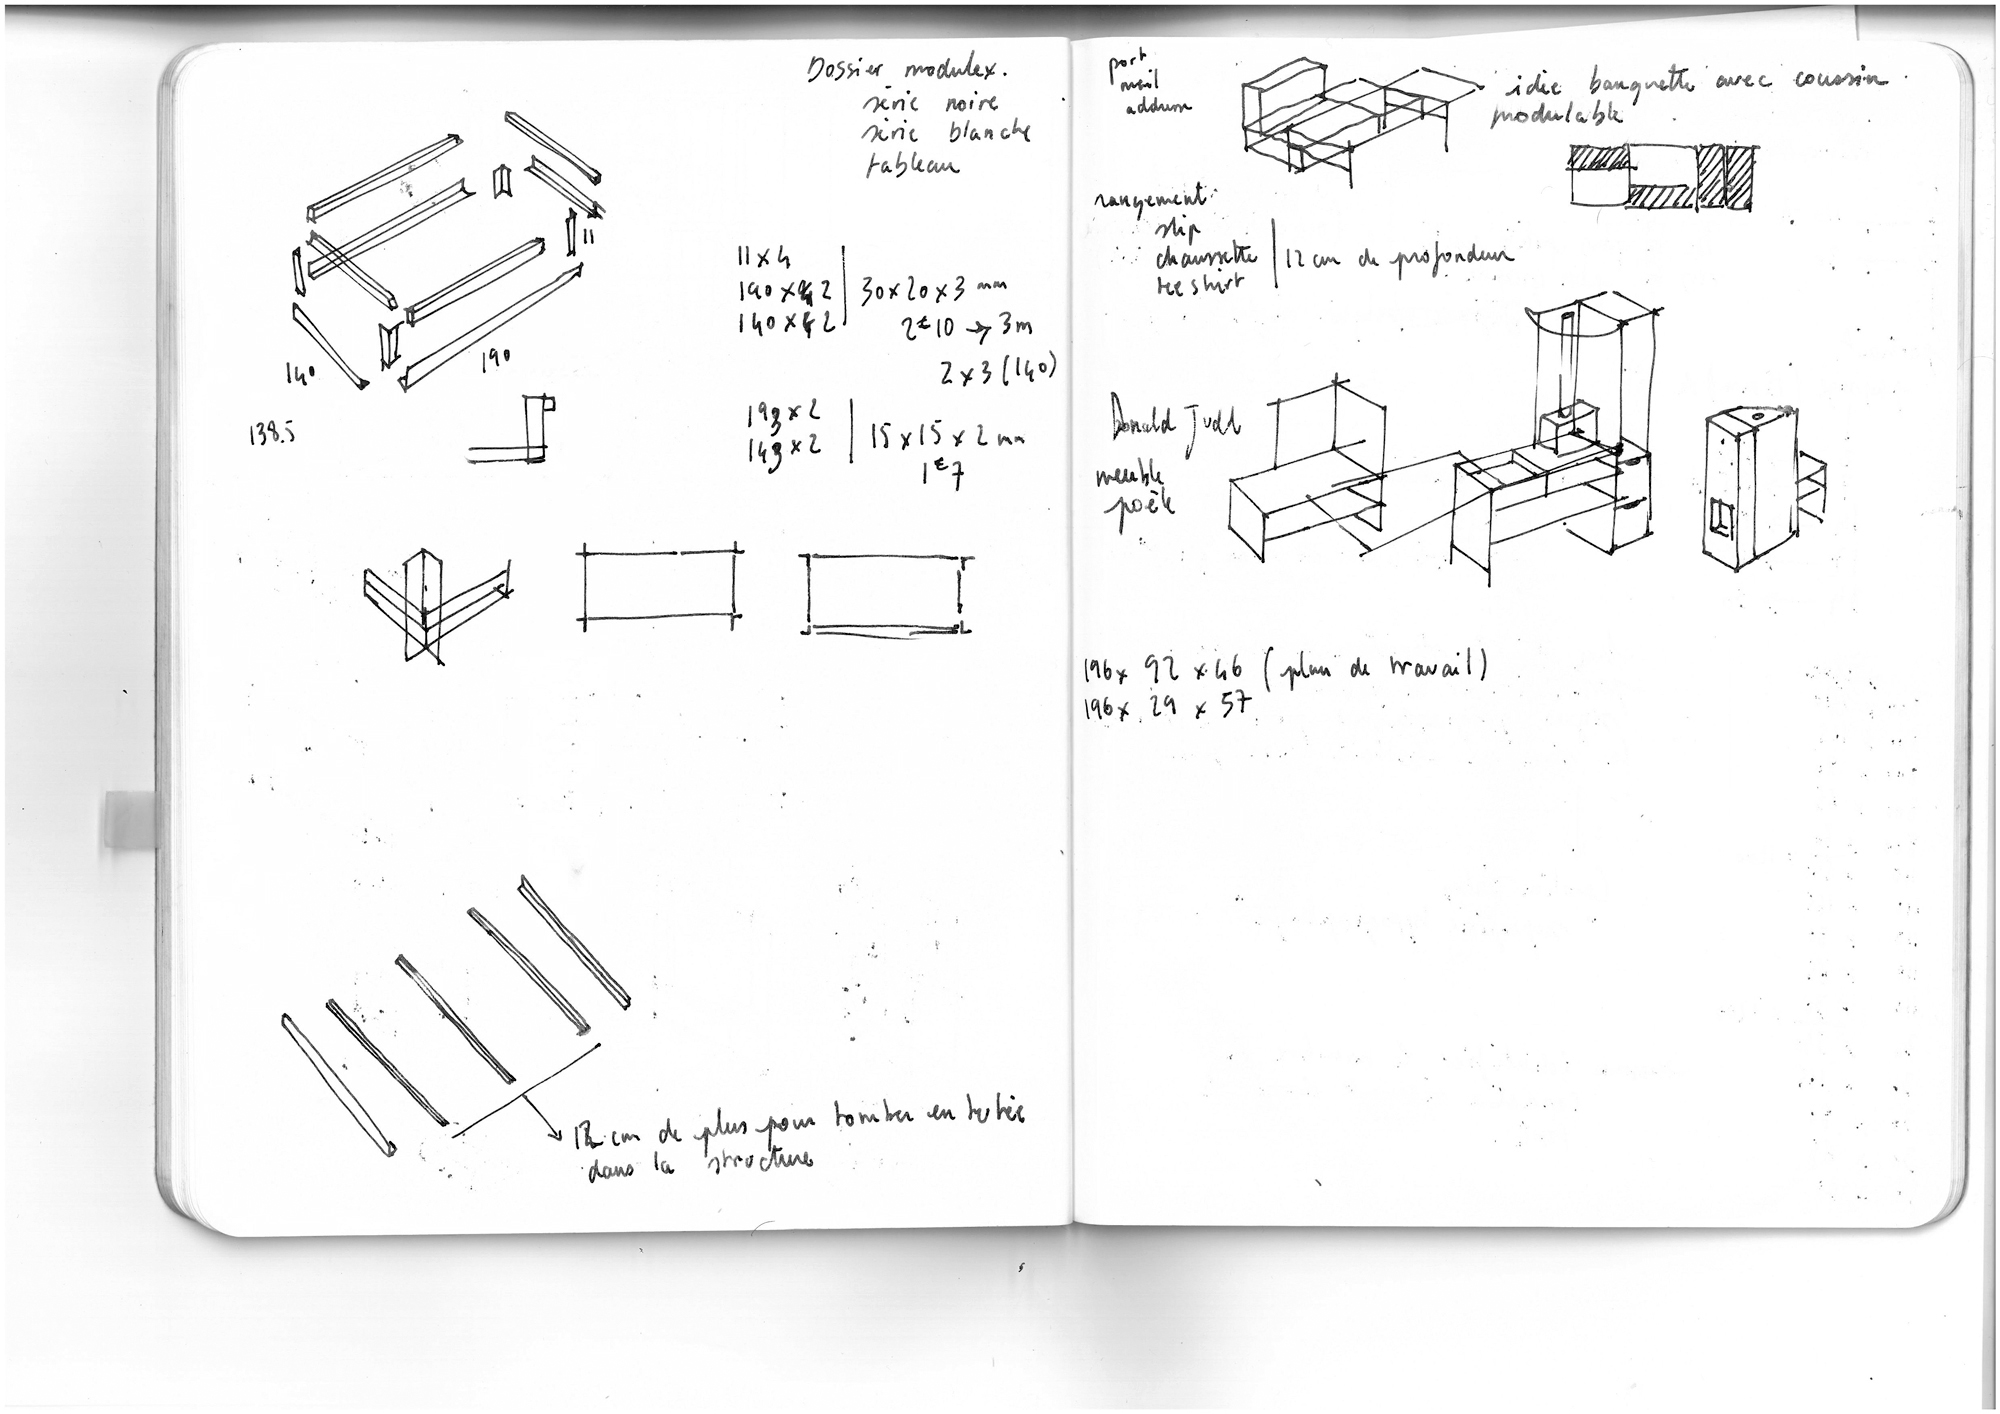 Dossier modulex.
série noire
série blanche
tableau
11
140
190
138.5
11 x 4
190 x 2
140 x 2
30 x 20 x 3 mm
2€10 → 3m
2 x 3 (140)
193 x 2
143 x 2
15 x 15 x 2 mm
1€7
12 cm de plus pour tomber en
dans la structure
port
idée banquette avec coussin
modulable
rangement:
slip
chaussette
tee shirt
12 cm de profondeur
Donald Judd
meuble
poêle
196 x 92 x 46 (plan de travail)
196 x 29 x 57